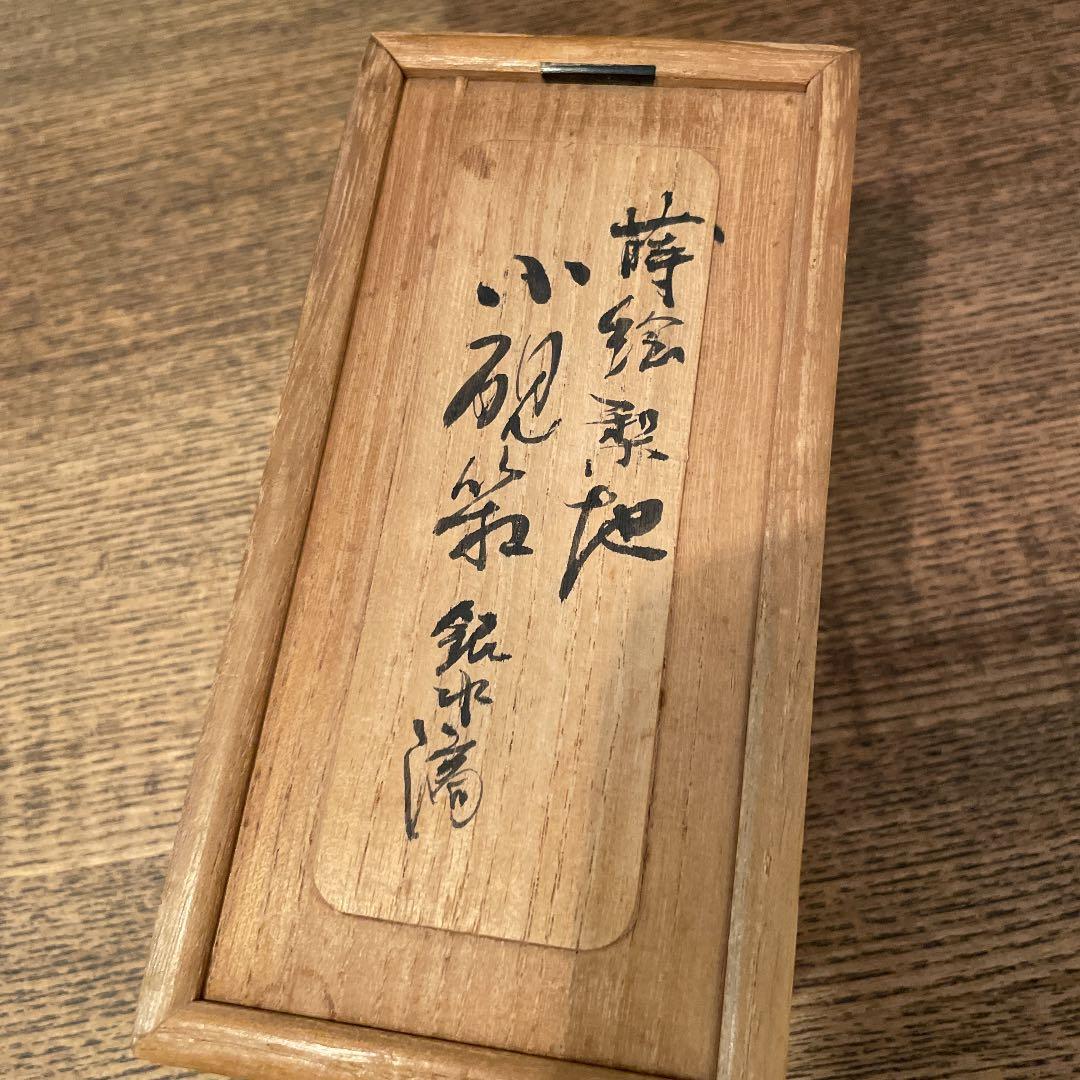 蒔絵梨地
小硯箱 銀水滴